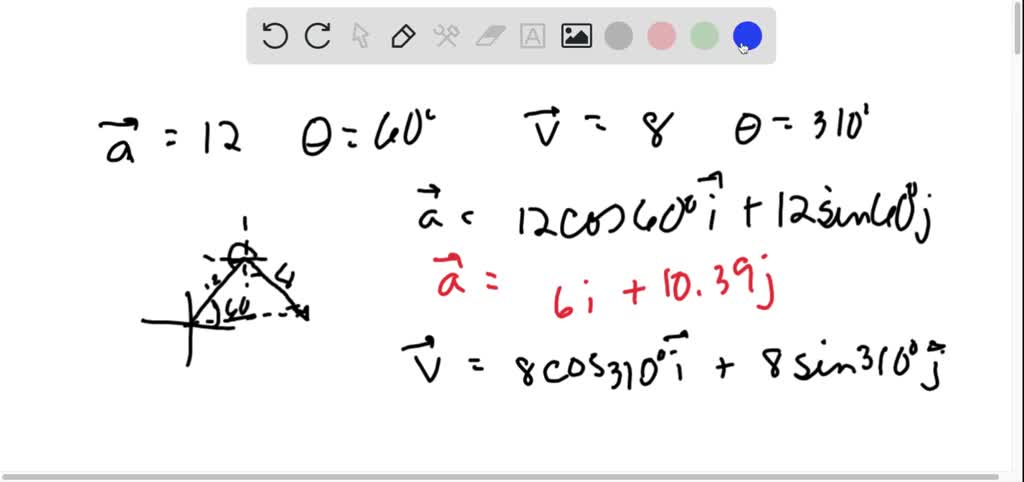 a⃗ = 12 θ = 60° v⃗ = 8 θ = 310°
a⃗ = 12cos60° i⃗ + 12sin60° j
a⃗ = 6i + 10.39j
60
v⃗ = 8cos310° i⃗ + 8sin310° j⃗